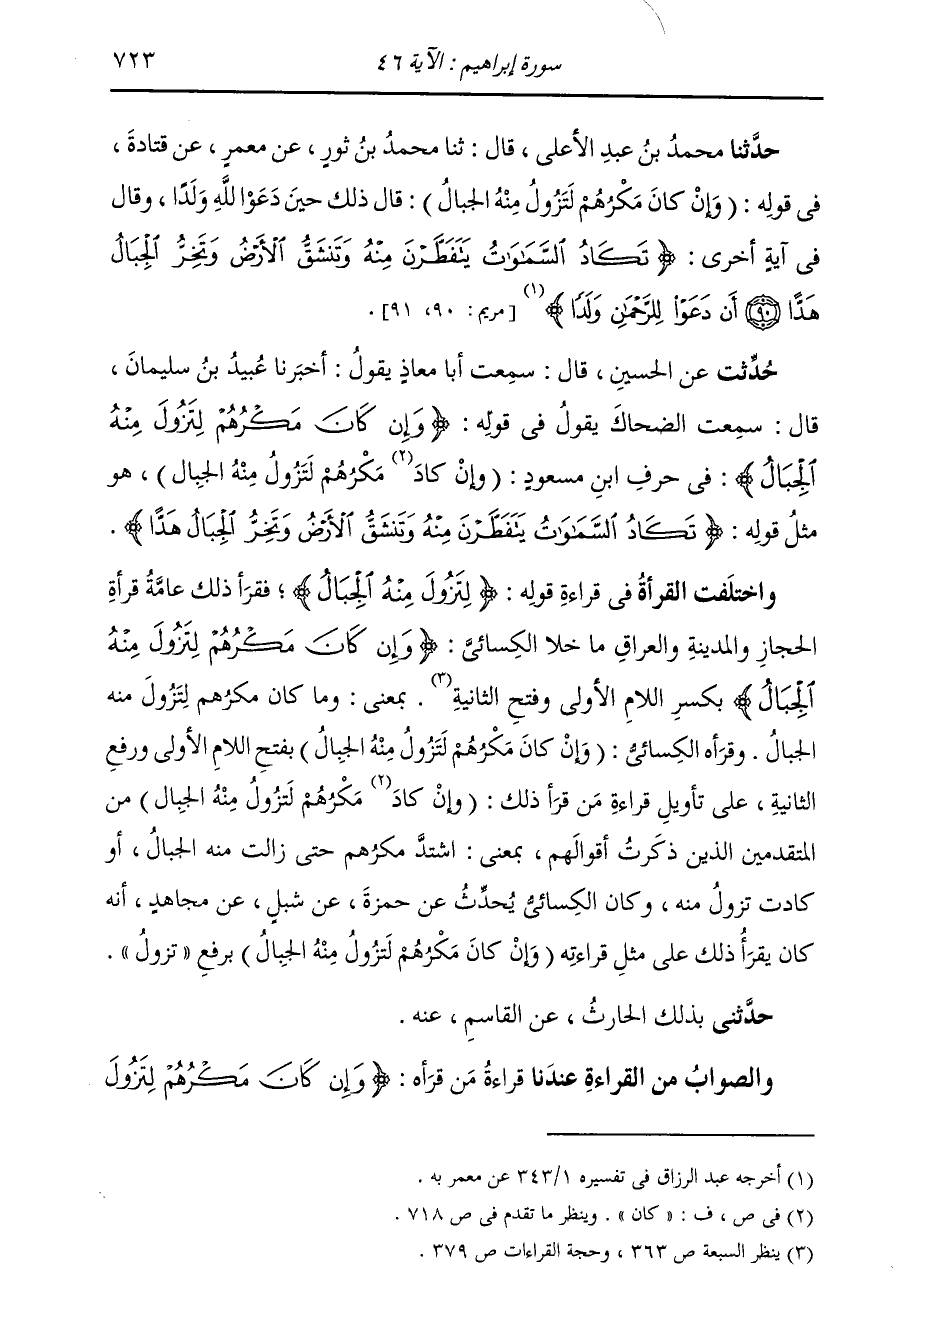 سورة إبراهيم : الآية ٤٦
٧٢٣
حدَّثنا محمدُ بنُ عبدِ الأعلى ، قال : ثنا محمدُ بنُ ثورٍ ، عن معمرٍ ، عن قتادةَ ،
فى قولِه : ( وَإِنْ كانَ مَكْرُهُمْ لَتَزُولُ مِنْهُ الجبالُ ) : قال ذلك حينَ دَعَوْا للَّهِ وَلَدًا ، وقال
فى آيةٍ أخرى : ﴿ تَكَادُ ٱلسَّمَٰوَٰتُ يَتَفَطَّرْنَ مِنْهُ وَتَنشَقُّ ٱلْأَرْضُ وَتَخِرُّ ٱلْجِبَالُ
هَدًّا ﴿٩٠﴾ أَن دَعَوْا لِلرَّحْمَٰنِ وَلَدًا ﴾(١) [مريم: ٩٠، ٩١] .
حُدِّثت عن الحسينِ ، قال : سمِعت أبا معاذٍ يقولُ : أخبَرنا عُبيدُ بنُ سليمانَ ،
قال : سمِعت الضحاكَ يقولُ فى قولِه : ﴿ وَإِن كَانَ مَكْرُهُمْ لِتَزُولَ مِنْهُ
ٱلْجِبَالُ ﴾ : فى حرفِ ابنِ مسعودٍ : ( وإنْ كادَ(٢) مَكْرُهُمْ لَتَزُولُ مِنْهُ الجِبال ) ، هو
مثلُ قولِه : ﴿ تَكَادُ ٱلسَّمَٰوَٰتُ يَتَفَطَّرْنَ مِنْهُ وَتَنشَقُّ ٱلْأَرْضُ وَتَخِرُّ ٱلْجِبَالُ هَدًّا ﴾ .
واختلَفت القرأةُ فى قراءةِ قولِه : ﴿ لِتَزُولَ مِنْهُ ٱلْجِبَالُ ﴾ ؛ فقرَأ ذلك عامَّةُ قرأةِ
الحجازِ والمدينةِ والعراقِ ما خلا الكِسائىَّ : ﴿ وَإِن كَانَ مَكْرُهُمْ لِتَزُولَ مِنْهُ
ٱلْجِبَالُ ﴾ بكسرِ اللامِ الأولى وفتحِ الثانيةِ(٣) . بمعنى : وما كان مكرُهم لِتَزُولَ منه
الجبالُ . وقرَأه الكِسائىُّ : ( وَإِنْ كانَ مَكْرُهُمْ لَتَزُولُ مِنْهُ الجِبالُ ) بفتحِ اللامِ الأولى ورفعِ
الثانيةِ ، على تأويلِ قراءةِ مَن قرَأ ذلك : ( وإنْ كادَ(٢) مَكْرُهُمْ لَتَزُولُ مِنْهُ الجِبال ) من
المتقدمين الذين ذكَرتُ أقوالَهم ، بمعنى : اشتدَّ مكرُهم حتى زالت منه الجبالُ ، أو
كادت تزولُ منه ، وكان الكِسائىُّ يُحدِّثُ عن حمزةَ ، عن شبلٍ ، عن مجاهدٍ ، أنه
كان يقرَأُ ذلك على مثلِ قراءتِه ( وَإِنْ كانَ مَكْرُهُمْ لَتزولُ مِنْهُ الجِبالُ ) برفعِ « تزولُ » .
حدَّثنى بذلك الحارثُ ، عن القاسمِ ، عنه .
والصوابُ من القراءةِ عندَنا قراءةُ مَن قرَأه : ﴿ وَإِن كَانَ مَكْرُهُمْ لِتَزُولَ
(١) أخرجه عبد الرزاق فى تفسيره ٣٤٣/١ عن معمر به .
(٢) فى ص ، ف : « كان » . وينظر ما تقدم فى ص ٧١٨ .
(٣) ينظر السبعة ص ٣٦٣ ، وحجة القراءات ص ٣٧٩ .